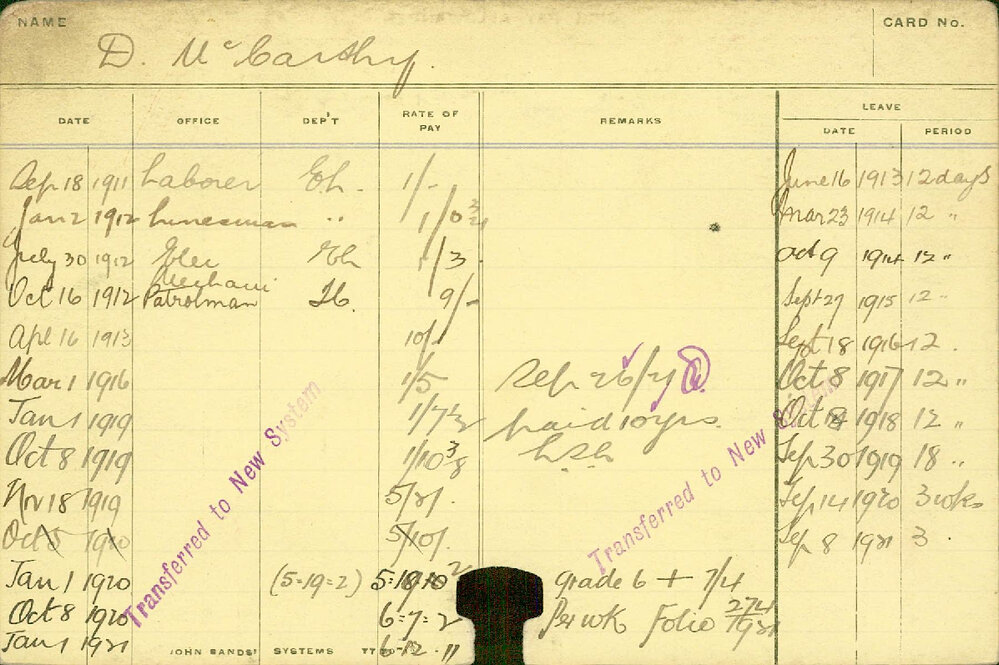 NAME
CARD No.
D. McCarthy.
LEAVE
DATE OFFICE DEP'T RATE OF PAY REMARKS DATE PERIOD
Sep 18 1911 Laborer Eh. 1/- June 16 1913 12 days
Jan 2 1912 Linesman " 1/0 3/4 Mar 23 1914 12 "
July 30 1912 Elec Eh 1/3 Oct 9 1914 12 "
Mechani
Oct 16 1912 Patrolman 9/- Sept 27 1915 12 "
Apl 16 1913 10/- Sept 18 1916 12 .
Mar 1 1916 1/5 Sep 26/21 Oct 8 1917 12 "
Jan 1 1919 1/7 1/2 paid 10 yrs. Oct 1918 12 "
Oct 8 1919 1/10 3/8 Sep 30 1919 18 "
Nov 18 1919 Sep 14 1920 3 wks
Oct 8 1920 Sep 8 1921 3 .
Jan 1 1920 (5=19=2) grade 6 + 7/4
Oct 8 1920 6=7=2 Per wk Folio 274/1921
Jan 1 1921 6=12=11
Transferred to New System
Transferred to New System
JOHN SANDS' SYSTEMS